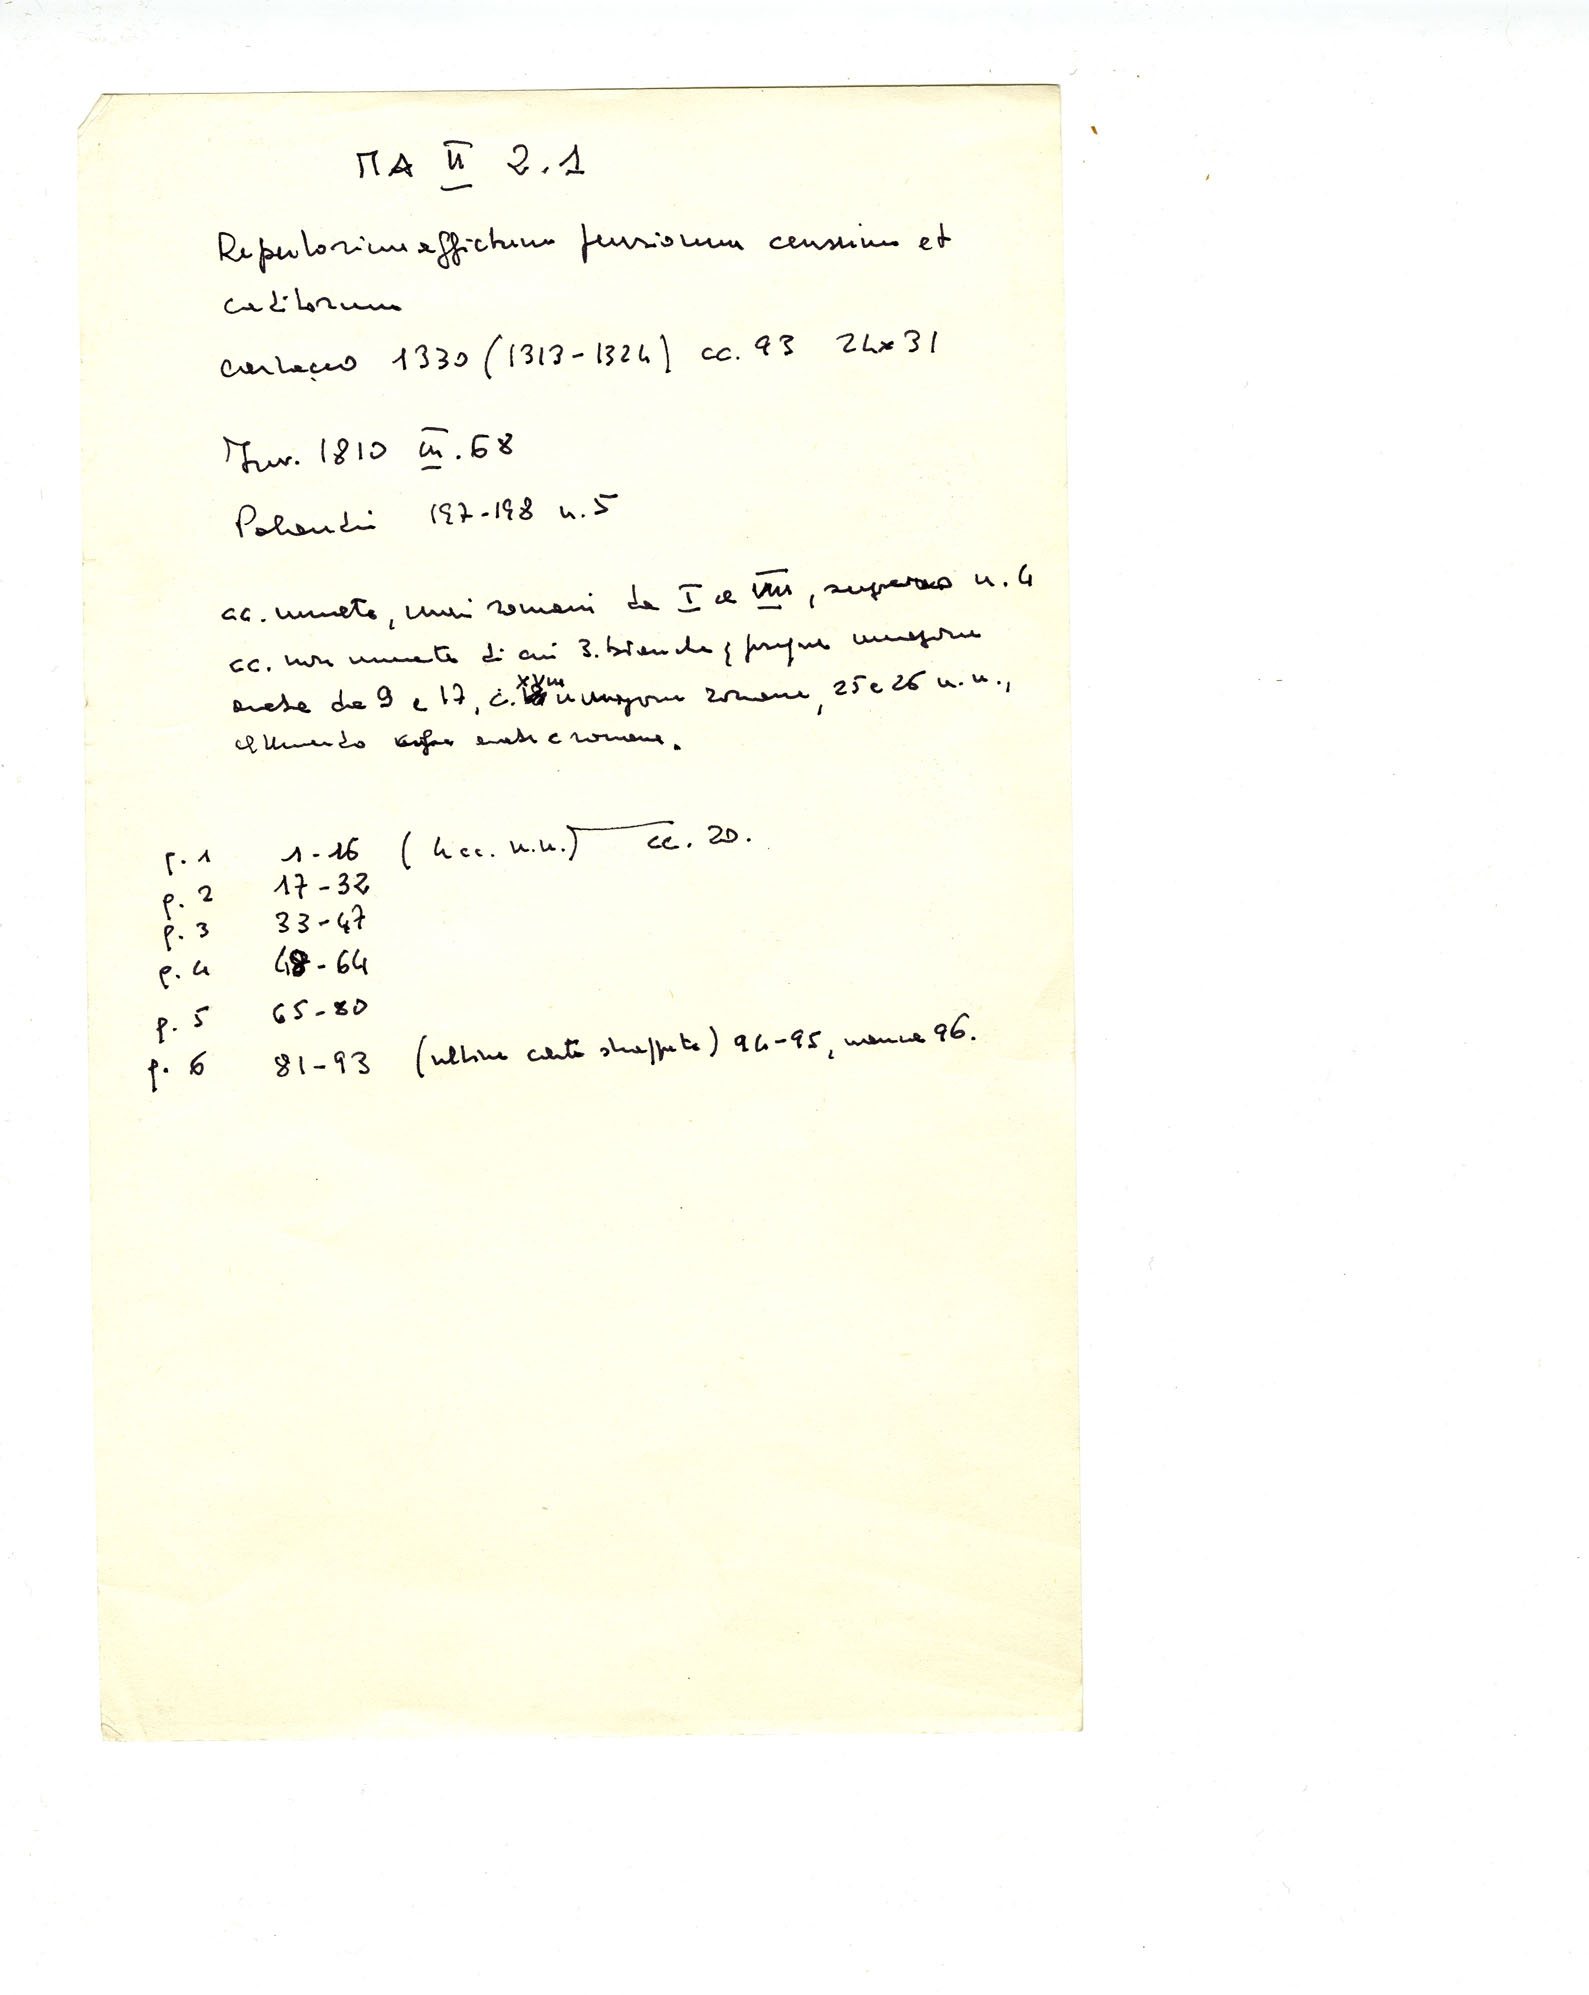 MA II 2.1
Repertorium affictum pensionum censuum et
caditorum
cartaceo 1330 (1313-1324) cc. 93 24x31
Inv. 1810 III.68
197-198 n.5
cc. numerate, numeri romani da I a VIII, n. 4
cc. non numerate di cui 3 bianche, numerazione
araba da 9 a 17, c. XVIII numerazione romana, 25 e 26 n.n.,
alternando arabe e romane.
p. 1 1-16 (4 cc. n.n.) cc. 20.
p. 2 17-32
p. 3 33-47
p. 4 48-64
p. 5 65-80
p. 6 81-93 (ultime carte strappate) 94-95, manca 96.